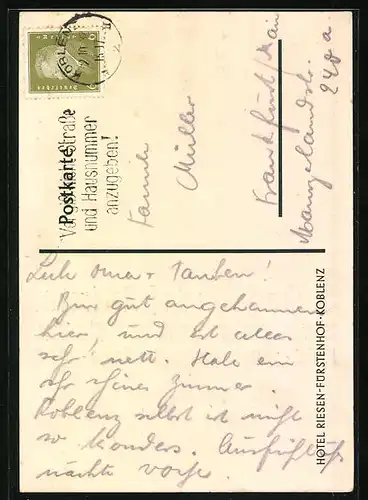 KOBLENZ
Deutsches Reich
Postkarte
Straße
und Hausnummer
anzugeben!
Familie
Müller
Frankfurt/Main
240 a.
HOTEL RIESEN-FÜRSTENHOF·KOBLENZ
Lieb Oma + Tanten!
Bin gut angekommen
hier, und ist alles
sehr nett. Habe ein
sehr schönes Zimmer.
Koblenz selbst ist nicht
so besonders. Ausführlich
nächste Woche.